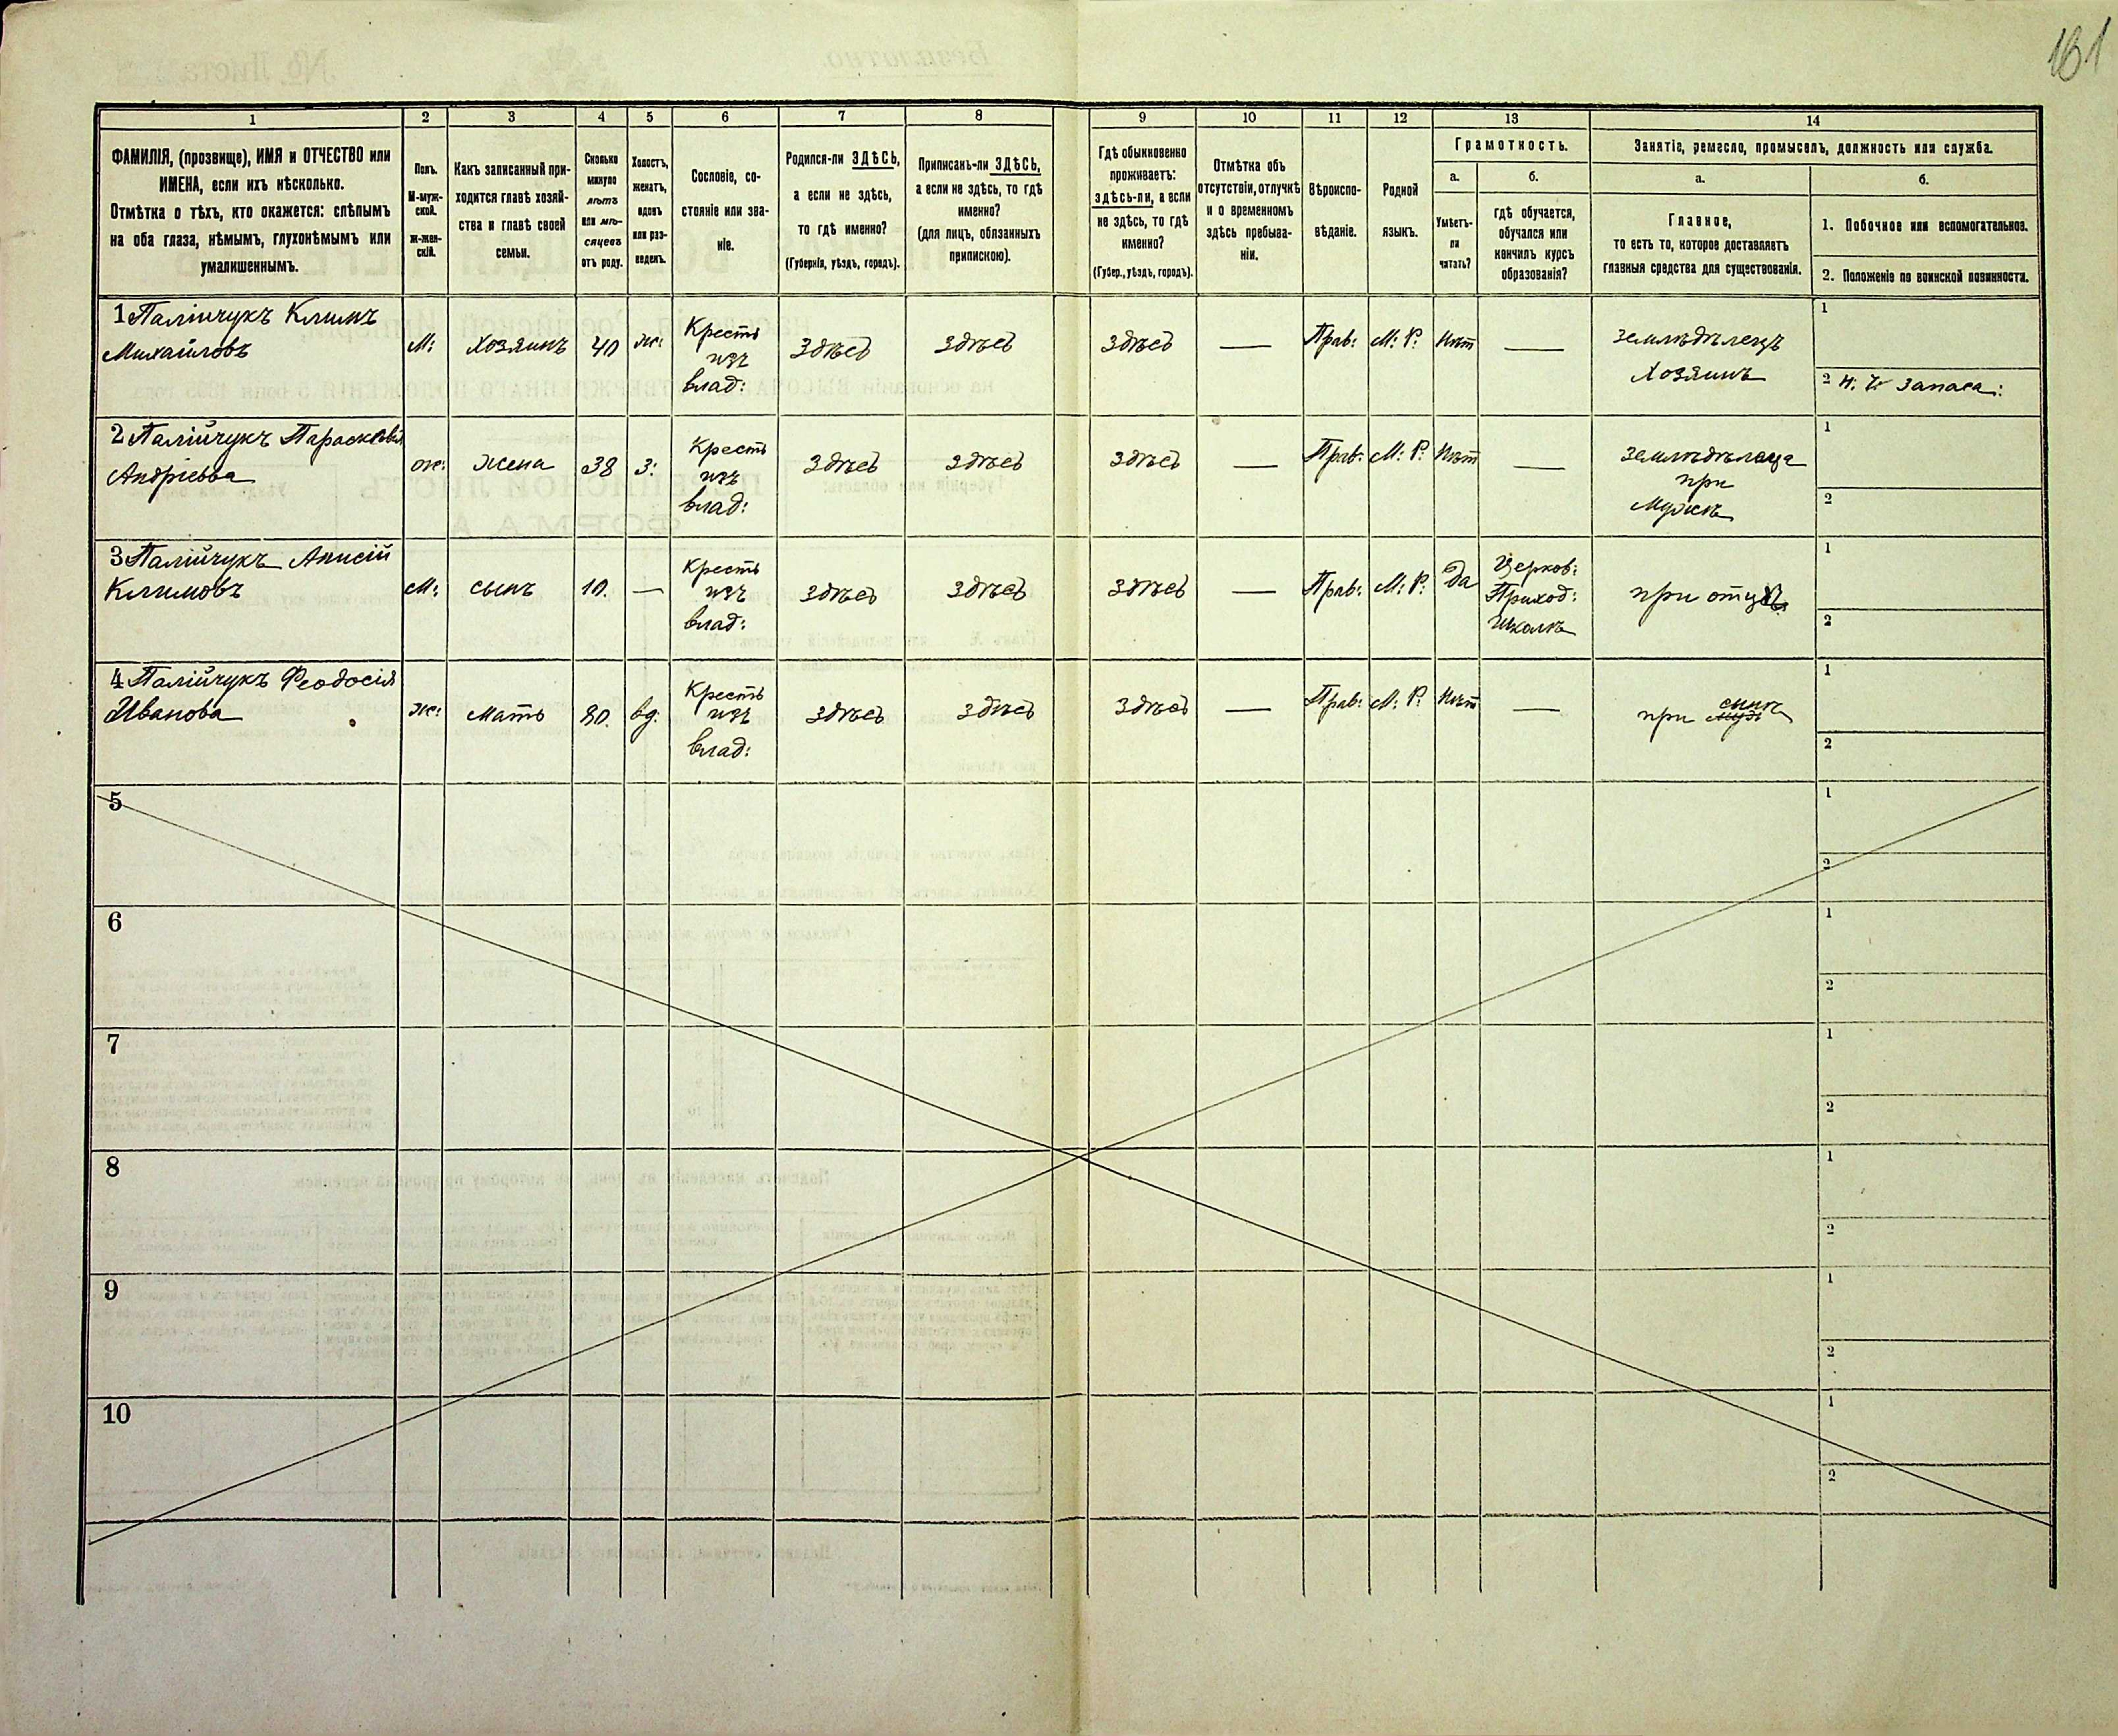 161
1
2
3
4
5
6
7
8
9
10
11
12
13
14
ФАМИЛІЯ, (прозвище), ИМЯ и ОТЧЕСТВО или
ИМЕНА, если ихъ нѣсколько.
Отмѣтка о тѣхъ, кто окажется: слѣпымъ
на оба глаза, нѣмымъ, глухонѣмымъ или
умалишеннымъ.
Полъ.
М-муж-
ской.
ж-жен-
скій.
Какъ записанный при-
ходится главѣ хозяй-
ства и главѣ своей
семьи.
Сколько
минуло
лѣтъ
или мѣ-
сяцевъ
отъ роду.
Холостъ,
женатъ,
вдовъ
или раз-
веденъ.
Сословіе, со-
стояніе или зва-
ніе.
Родился-ли ЗДѢСЬ,
а если не здѣсь,
то гдѣ именно?
(Губернія, уѣздъ, городъ).
Приписанъ-ли ЗДѢСЬ,
а если не здѣсь, то гдѣ
именно?
(для лицъ, обязанныхъ
припискою).
Гдѣ обыкновенно
проживаетъ:
здѣсь-ли, а если
не здѣсь, то гдѣ
именно?
(Губер., уѣздъ, городъ).
Отмѣтка объ
отсутствіи, отлучкѣ
и о временномъ
здѣсь пребыва-
ніи.
Вѣроиспо-
вѣданіе.
Родной
языкъ.
Грамотность.
а.
Умѣетъ-
ли
читать?
б.
гдѣ обучается,
обучался или
кончилъ курсъ
образованія?
Занятіе, ремесло, промыселъ, должность или служба.
а.
Главное,
то есть то, которое доставляетъ
главныя средства для существованія.
б.
1. Побочное или вспомогательное.
2. Положеніе по воинской повинности.
1 Палійчукъ Климъ
Михайловъ
М:
Хозяинъ
40
ж:
Кресть
изъ
влад:
Здѣсь
Здѣсь
Здѣсь
—
Прав:
М: Р:
Нѣт
—
Земледѣлецъ
Хозяинъ
1
2 Н: Ч: Запаса:
2 Палійчукъ Параскевія
Андріевва
ж:
Жена
38
З:
Кресть
изъ
влад:
Здѣсь
Здѣсь
Здѣсь
—
Прав:
М: Р:
Нѣт
—
при
Мужѣ
1
2
3 Палійчукъ Анисій
Климовъ
М:
сынъ
10.
—
Кресть
изъ
влад:
Здѣсь
Здѣсь
Здѣсь
—
Прав:
М: Р:
Да
Церков:
Приход:
Школѣ
при отцѣ
1
2
4 Палійчукъ Феодосія
Иванова
ж:
Мать
80.
вд:
Кресть
изъ
влад:
Здѣсь
Здѣсь
Здѣсь
—
Прав:
М: Р:
Нѣт
—
при сынѣ
1
2
5
1
2
6
1
2
7
1
2
8
1
2
9
1
2
10
1
2